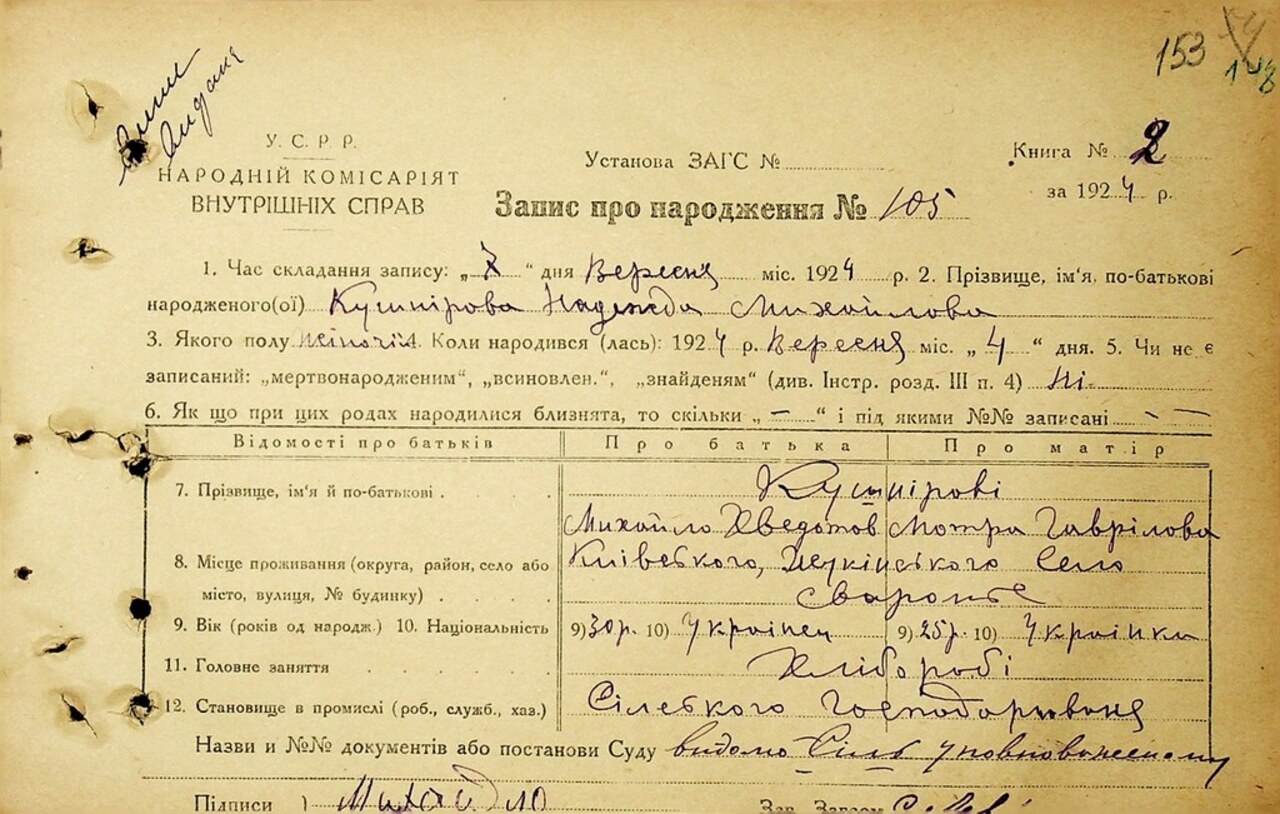 153
148
У. С. Р. Р.
НАРОДНІЙ КОМІСАРІЯТ
ВНУТРІШНІХ СПРАВ
Установа ЗАГС №
Книга № 2
за 1924 р.
Запис про народження № 105
1. Час складання запису: „ 7 “ дня Вересня міс. 1924 р. 2. Прізвище, ім‘я, по-батькові
народженого(ої) Кушнірова Надежда Михайлова
3. Якого полу жіночій 4. Коли народився (лась): 1924 р. Вересня міс. „ 4 “ дня. 5. Чи не є
записаний: „мертвонародженим“, „всиновлен.“, „знайденям“ (див. Інстр. розд. III п. 4) Ні.
6. Як що при цих родах народилися близнята, то скільки „ — “ і під якими №№ записані — —
Відомості про батьків Про батька Про матір
7. Прізвище, ім‘я й по-батькові Кушнірові
Михайло Хведотов Мотра Гаврілова
8. Місце проживання (округа, район, село або Київського, Села
місто, вулиця, № будинку) Сваромье
9. Вік (років од народж.) 10. Національність 9) 30р. 10) Українец 9) 25р. 10) Українка
11. Головне заняття Хлібороби
12. Становище в промислі (роб., служб., хаз.) Сілského Господарювання
Назви и №№ документів або постанови Суду видомо Сіль уповноваженому
Підписи } Михайло Зав. Загсом